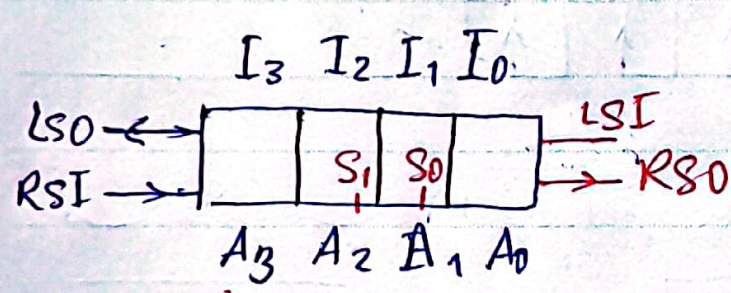 I3 I2 I1 I0
LSO LSI
RSI S1 S0 RSO
A3 A2 A1 A0